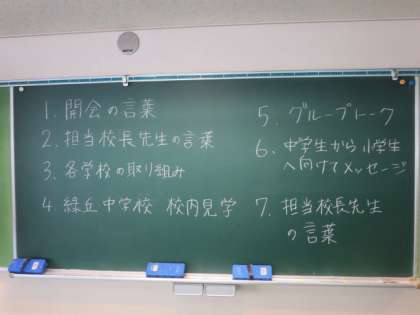 1. 開会の言葉
2. 担当校長先生の言葉
3. 各学校の取り組み
4 緑丘中学校 校内見学
5. グループトーク
6. 中学生から小学生
へ向けてメッセージ
7. 担当校長先生
の言葉